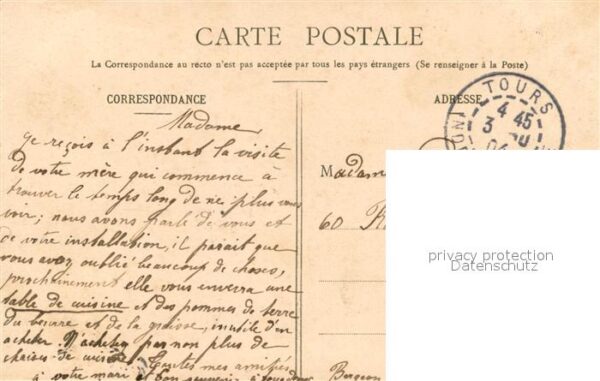 CARTE POSTALE
La Correspondance au recto n'est pas acceptée par tous les pays étrangers (Se renseigner à la Poste)
CORRESPONDANCE
Madame
Je reçois à l'instant la visite
de votre mère qui commence à
trouver le temps long de ne plus vous
voir; nous avons parlé de vous et
de votre installation, il parait que
vous avez oublié beaucoup de choses,
prochainement elle vous enverra une
table de cuisine et des pommes de terre
du beurre et de la graisse, inutile d'en
acheter. N'achetez pas non plus de
chaises de cuisine. Toutes mes amitiés
à votre mari et bon souvenir à
ADRESSE
TOURS
4 45
3
04
Madame
60
privacy protection
Datenschutz